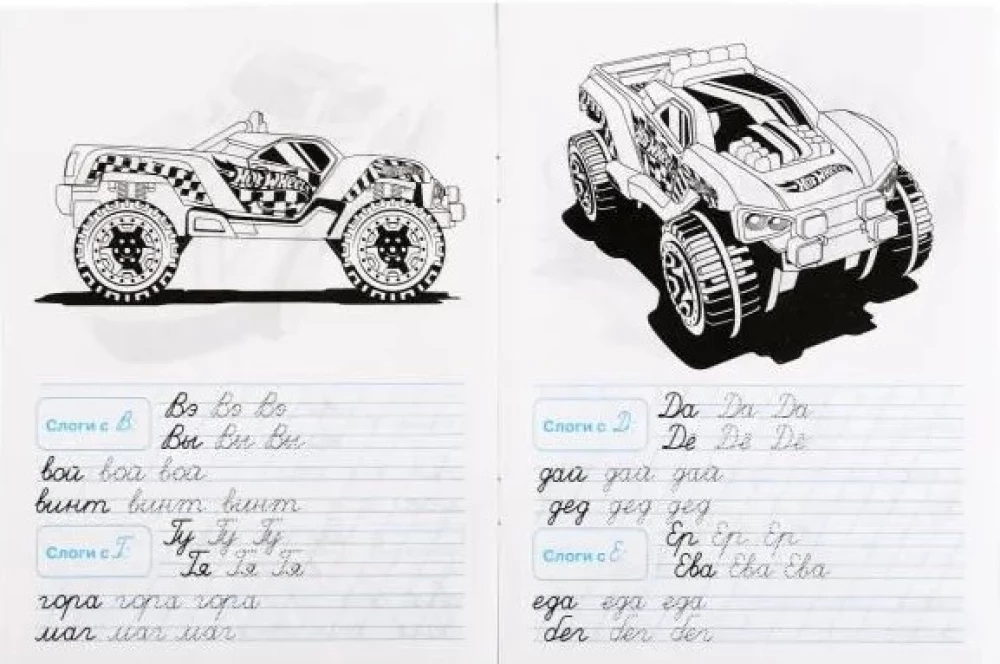 HOT WHEELS
Слоги с В:
Вэ Вэ Вэ
Вы Вы Вы
вой вой вой
винт винт винт
Слоги с Г:
Гу Гу Гу
Гя Гя Гя
гора гора гора
маг маг маг
HOT WHEELS
Слоги с Д:
Да Да Да
Дё Дё Дё
дай дай дай
дед дед дед
Слоги с Е:
Ер Ер Ер
Ева Ева Ева
еда еда еда
бег бег бег